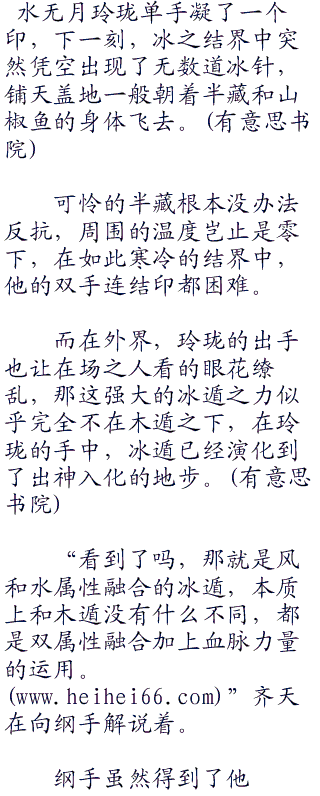 水无月玲珑单手凝了一个
印，下一刻，冰之结界中突
然凭空出现了无数道冰针，
铺天盖地一般朝着半藏和山
椒鱼的身体飞去。(有意思书
院)
可怜的半藏根本没办法
反抗，周围的温度岂止是零
下，在如此寒冷的结界中，
他的双手连结印都困难。
而在外界，玲珑的出手
也让在场之人看的眼花缭
乱，那这强大的冰遁之力似
乎完全不在木遁之下，在玲
珑的手中，冰遁已经演化到
了出神入化的地步。(有意思
书院)
“看到了吗，那就是风
和水属性融合的冰遁，本质
上和木遁没有什么不同，都
是双属性融合加上血脉力量
的运用。
(www.heihei66.com)”齐天
在向纲手解说着。
纲手虽然得到了他